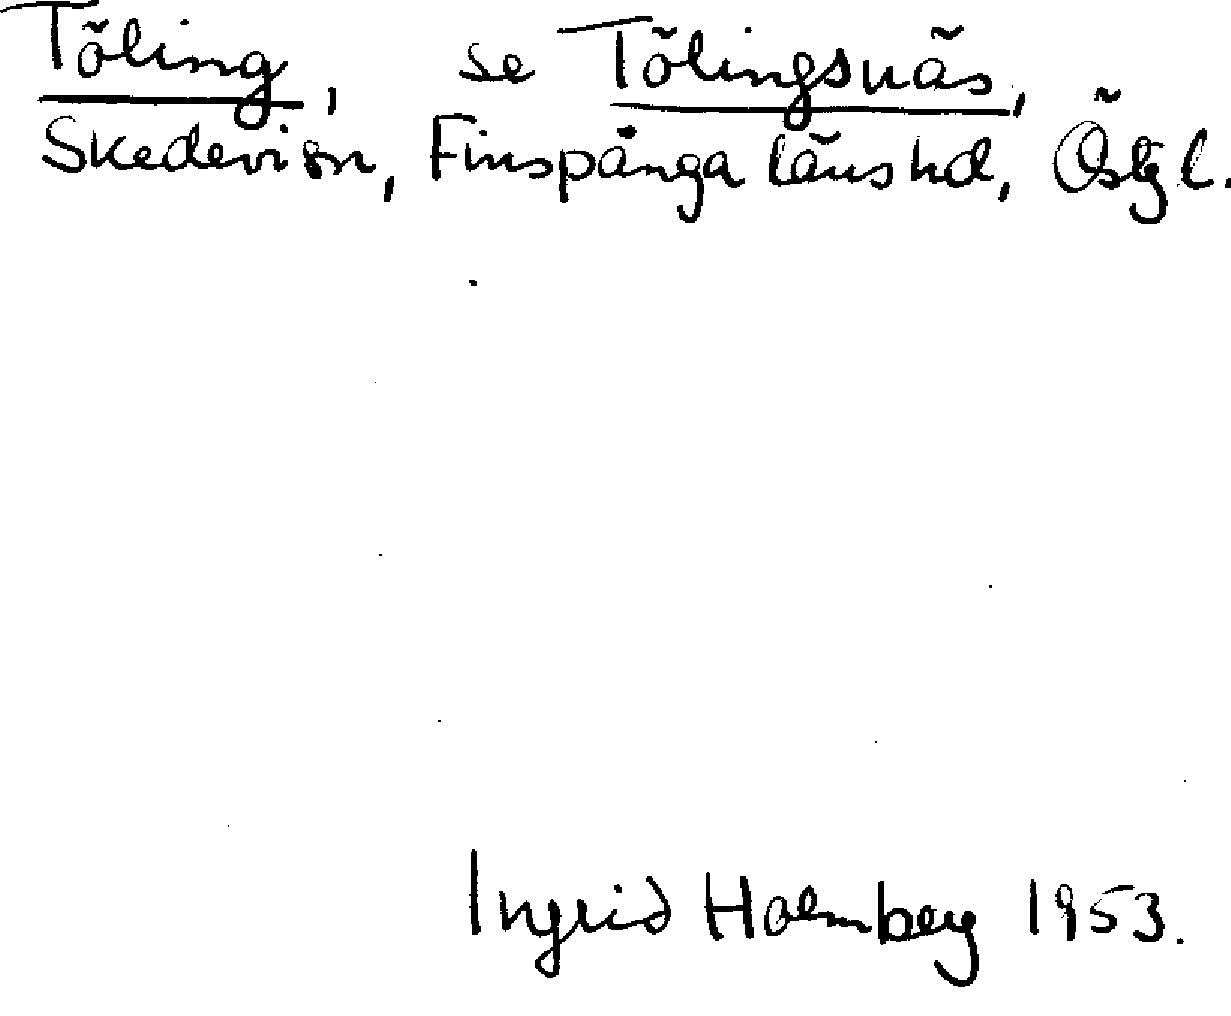 Töling, se Tölingsnäs,
Skedevi sn, Finspånga läns hd, Östgl.
Ingrid Holmberg 1953.